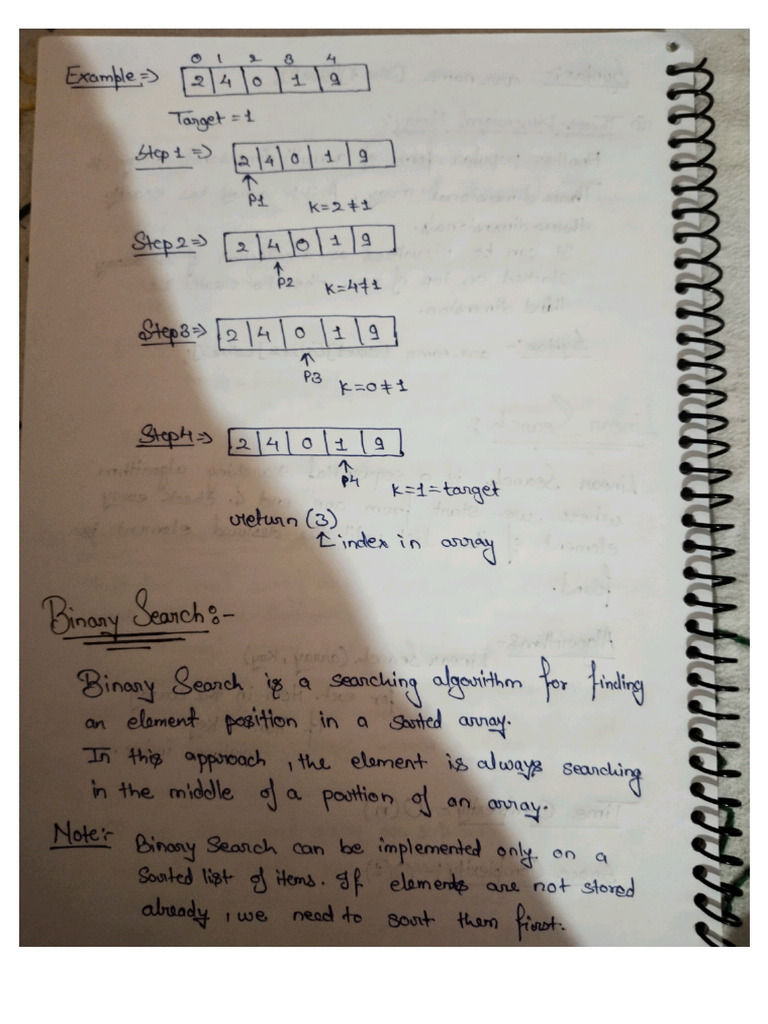 0 1 2 3 4
Example => 2 4 0 1 9
Target = 1
Step 1 => 2 4 0 1 9
↑
P1
K=2≠1
Step2 => 2 4 0 1 9
↑
P2
K=4≠1
Step3 => 2 4 0 1 9
↑
P3
K=0≠1
Step4 => 2 4 0 1 9
↑
P4
K=1=target
return (3)
↑ index in array
Binary Search:-
Binary Search is a searching algorithm for finding
an element position in a sorted array.
In this approach, the element is always searching
in the middle of a portion of an array.
Note:- Binary Search can be implemented only on a
sorted list of items. If elements are not stored
already, we need to sort them first.